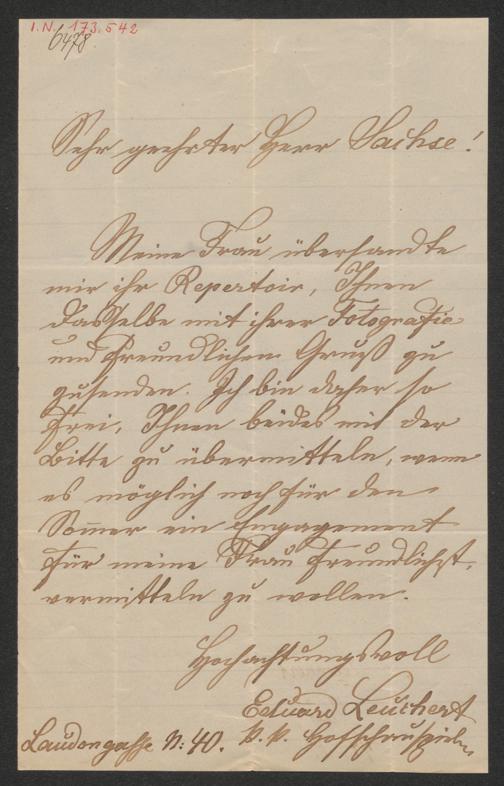 I.N. 173.542
6478.
Sehr geehrter Herr Sachse!
Meine Frau übersandte
mir ihr Repertoir, Ihnen
dasselbe mit ihrer Fotografie
und freundlichen Gruß zu
zusenden. Ich bin daher so
frei, Ihnen beides mit der
Bitte zu übermitteln, wenn
es möglich noch für den
Som̅er ein Engagement
für meine Frau freundlichst
vermitteln zu wollen.
Hochachtungsvoll
Eduard Leuthert
k. k. Hofschauspieler
Laudongasse N: 40.